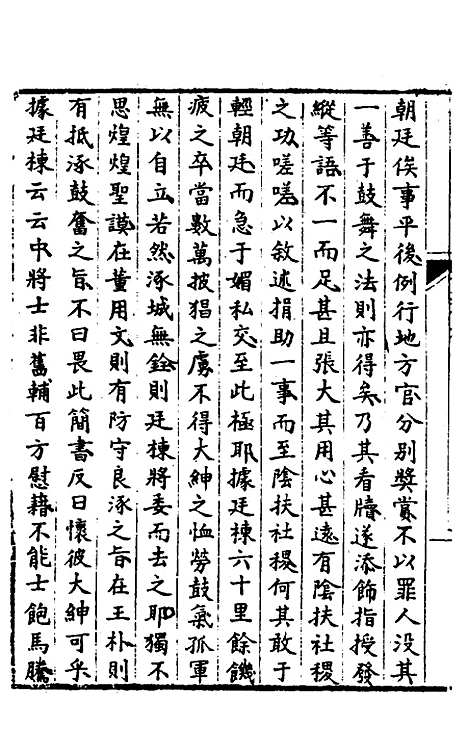 朝廷俟事平後例行地方官分別獎賞不以罪人没其
一善于鼓舞之法則亦得矣乃其看牘遂添飾指授發
縱等語不一而足甚且張大其用心甚遠有陰扶社稷
之功嗟嗟以敘述捐助一事而至陰扶社稷何其敢于
輕朝廷而急于媚私交至此極耶據廷棟六十里餘饑
疲之卒當數萬披猖之虜不得大紳之恤勞鼓氣孤軍
無以自立若然涿城無銓則廷棟將委而去之耶獨不
思煌煌聖謨在董用文則有防守良涿之旨在王朴則
有抵涿鼓奮之旨不曰畏此簡書反曰懷彼大紳可乎
據廷棟云云中將士非舊輔百方慰藉不能士飽馬騰